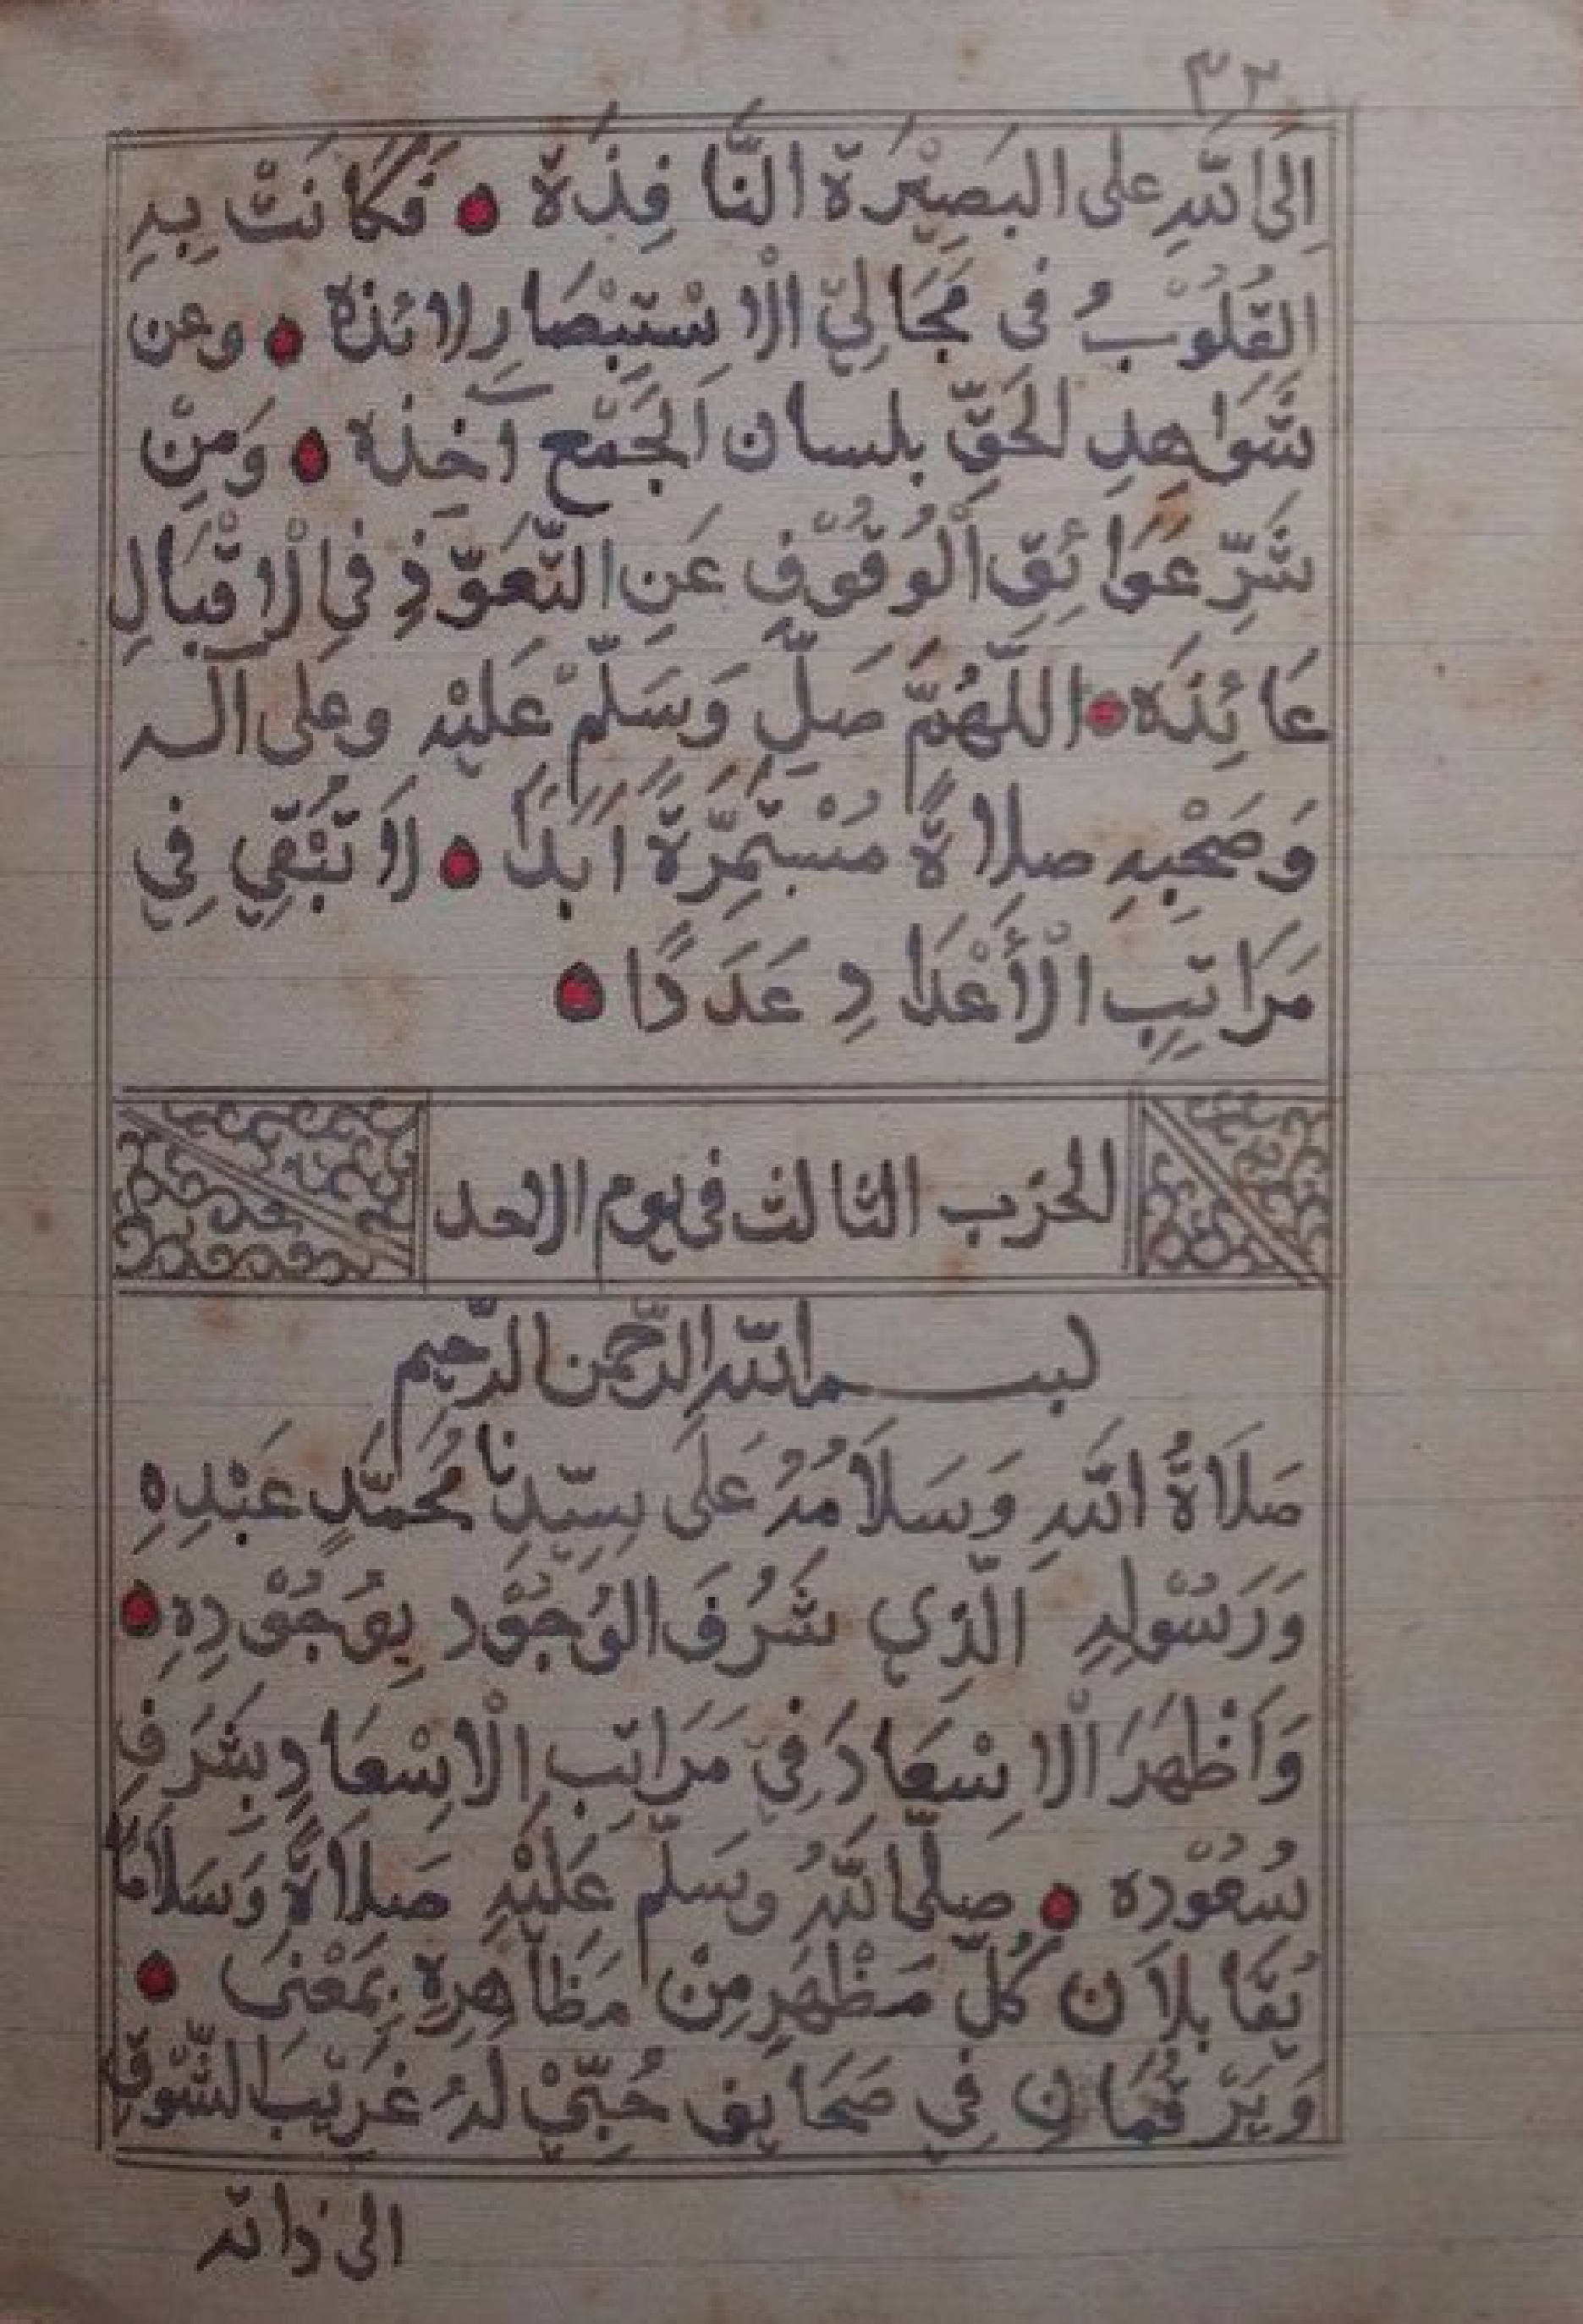 ٣٢
اِلَى اللّٰهِ على البَصِيْرَة النَّافِذَة ۝ فَكَانَتْ بِهِ
القُلُوْبُ فى مَجَالِيْ الْاِسْتِبْصَارِ لائذة ۝ وعن
شَوَاهِدِ الحَقِّ بلسان الجَمْع آخِذَه ۝ وَمِنْ
شَرِّ عَوَائِقِ الْوُقُوْفِ عَنِ التَّعَوّذِ فِي الْاِقْبَالِ
عَائِذَه ۝ اللّهُمَّ صَلِّ وَسَلّمْ عَلَيْهِ وعلى آله
وَصَحْبِهِ صلاةً مُسْتَمِرَّةً اَبَدَا ۝ لَا تُبْقِي فِي
مَرَاتِبِ الْأَعْدَادِ عَدَدًا ۝
الحزب الثالث فى يوم الاحد
بسم الله الرّحمن الرّحيم
صَلَاةُ اللّٰهِ وَسَلَامُهُ عَلَى سيّدِنا مُحَمَّدٍ عَبْدِهِ
وَرَسُوْلِهِ الَّذِي شَرُفَ الوُجُوْد بِوُجُوْدِهِ ۝
وَاَظْهَرَ الْاِسْعَادَ فِيْ مَرَاتِبِ الْاِسْعَادِ بِشَرَفِ
سُعُوْدِه ۝ صلّى اللّٰهُ وسَلّم عَلَيْهِ صَلاةً وَسَلَامًا
يُقَابلاَنِ كُلّ مَظْهَرٍ مِنْ مَظَاهِرِهِ بِمَعْنى ۝
وَيَرْقُمَانِ فِي صَحَايِفِ حُبِّيْ لَهُ غَرِيْبَ الشَّوْقِ
الى ذاته